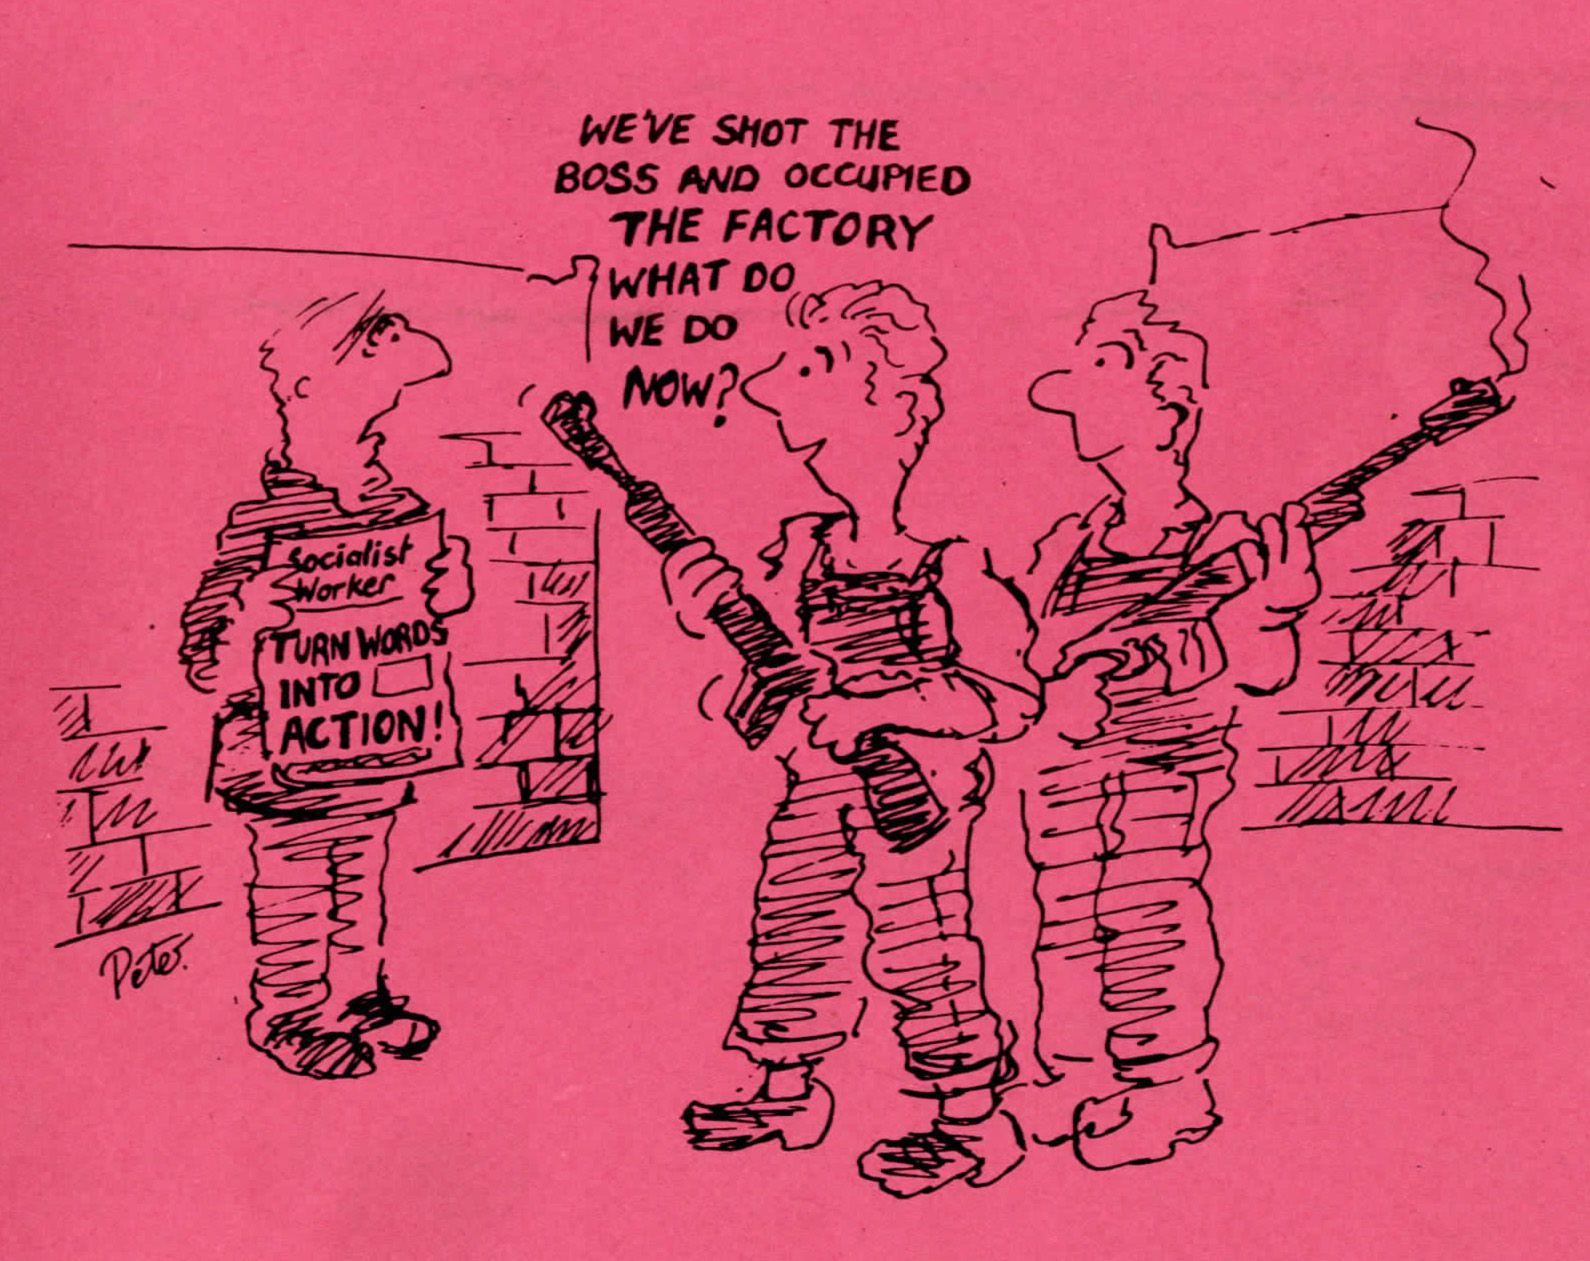 WE'VE SHOT THE
BOSS AND OCCUPIED
THE FACTORY
WHAT DO
WE DO
NOW?
Socialist
Worker
TURN WORDS
INTO
ACTION!
Peter.